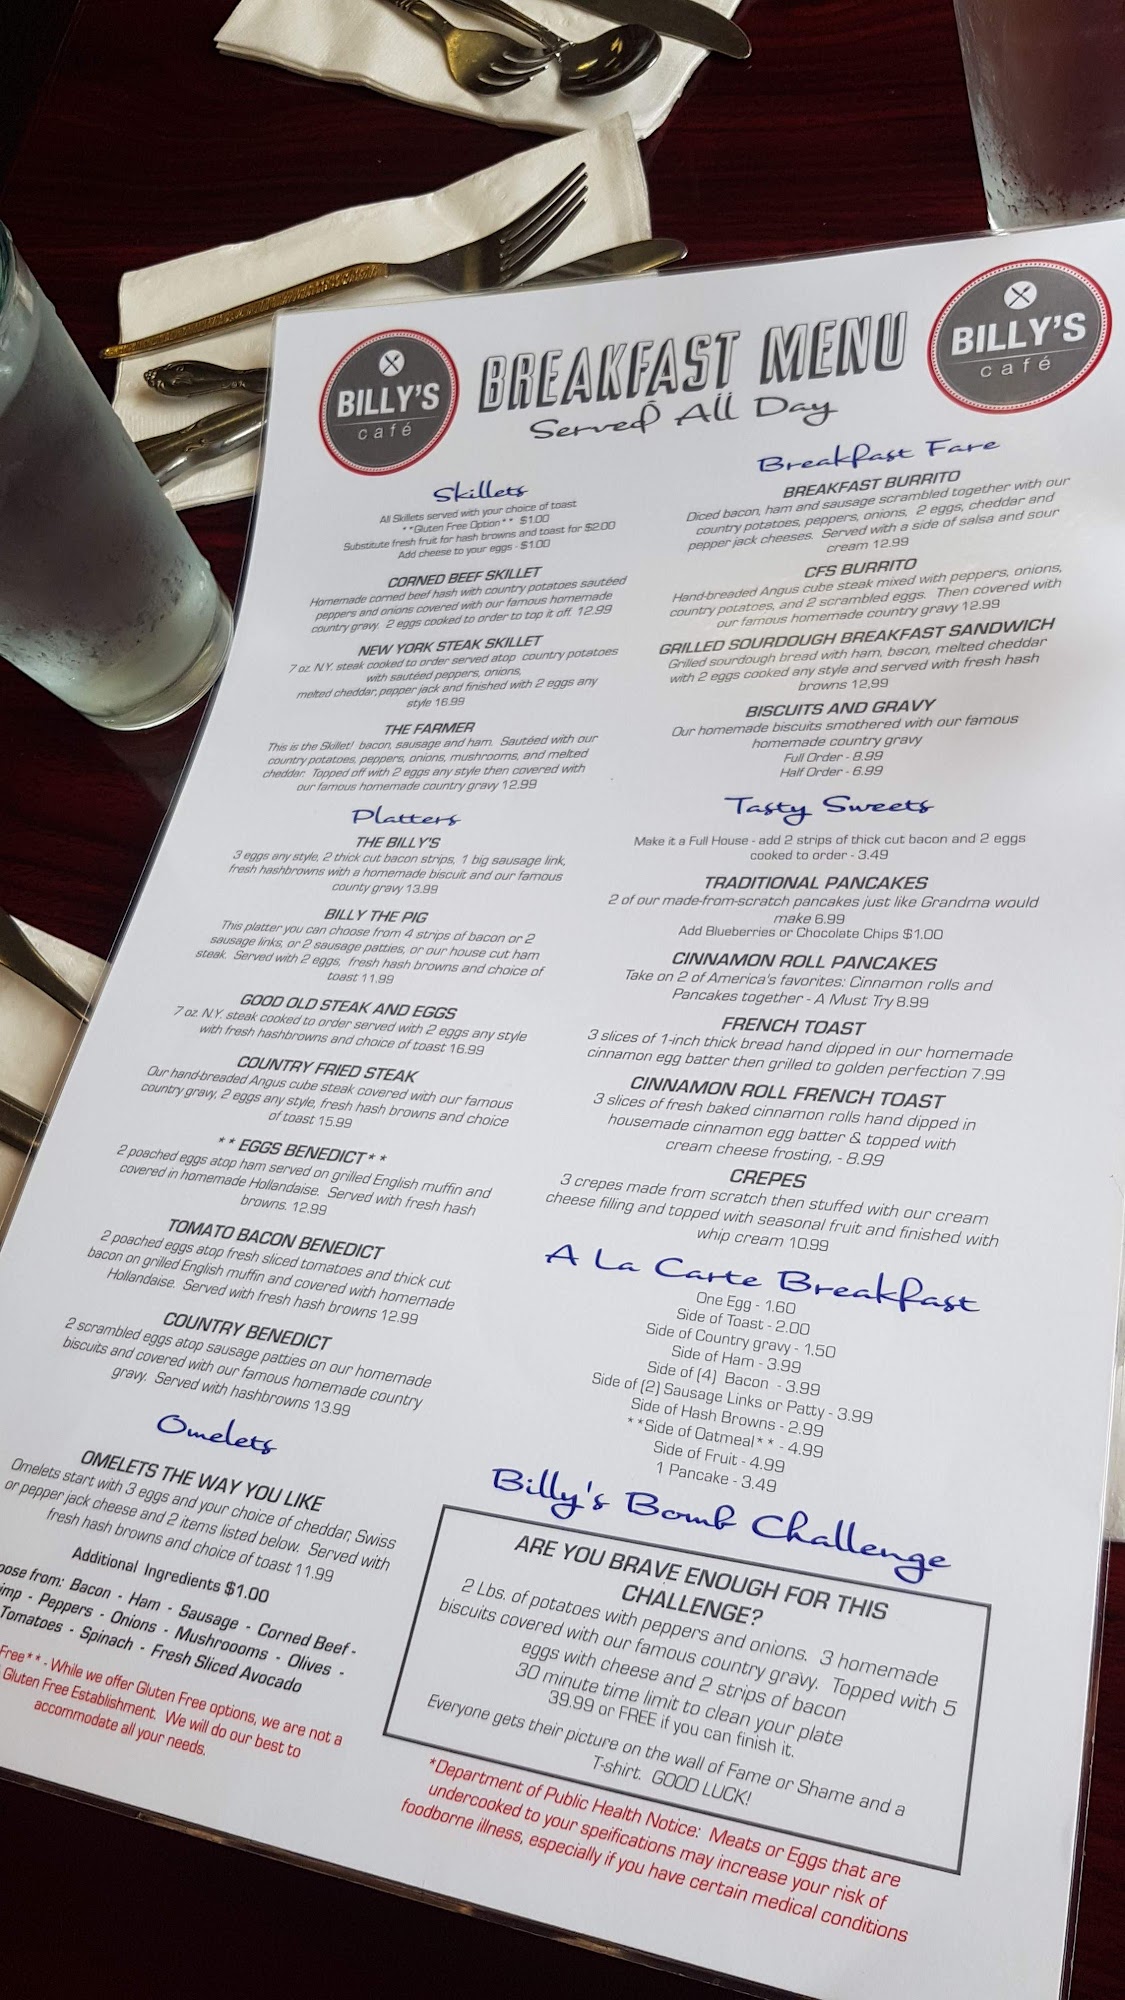 BILLY'S
café
BREAKFAST MENU
Served All Day
BILLY'S
café
Skillets
All Skillets served with your choice of toast
**Gluten Free Option** $1.00
Substitute fresh fruit for hash browns and toast for $2.00
Add cheese to your eggs - $1.00
CORNED BEEF SKILLET
Homemade corned beef hash with country potatoes sautéed
peppers and onions covered with our famous homemade
country gravy. 2 eggs cooked to order to top it off. 12.99
NEW YORK STEAK SKILLET
7 oz. N.Y. steak cooked to order served atop country potatoes
with sautéed peppers, onions,
melted cheddar, pepper jack and finished with 2 eggs any
style 16.99
THE FARMER
This is the Skillet! bacon, sausage and ham. Sautéed with our
country potatoes, peppers, onions, mushrooms, and melted
cheddar. Topped off with 2 eggs any style then covered with
our famous homemade country gravy 12.99
Platters
THE BILLY'S
3 eggs any style, 2 thick cut bacon strips, 1 big sausage link,
fresh hashbrowns with a homemade biscuit and our famous
county gravy 13.99
BILLY THE PIG
This platter you can choose from 4 strips of bacon or 2
sausage links, or 2 sausage patties, or our house cut ham
steak. Served with 2 eggs, fresh hash browns and choice of
toast 11.99
GOOD OLD STEAK AND EGGS
7 oz. N.Y. steak cooked to order served with 2 eggs any style
with fresh hashbrowns and choice of toast 16.99
COUNTRY FRIED STEAK
Our hand-breaded Angus cube steak covered with our famous
country gravy, 2 eggs any style, fresh hash browns and choice
of toast 15.99
**EGGS BENEDICT**
2 poached eggs atop ham served on grilled English muffin and
covered in homemade Hollandaise. Served with fresh hash
browns. 12.99
TOMATO BACON BENEDICT
2 poached eggs atop fresh sliced tomatoes and thick cut
bacon on grilled English muffin and covered with homemade
Hollandaise. Served with fresh hash browns 12.99
COUNTRY BENEDICT
2 scrambled eggs atop sausage patties on our homemade
biscuits and covered with our famous homemade country
gravy. Served with hashbrowns 13.99
Omelets
OMELETS THE WAY YOU LIKE
Omelets start with 3 eggs and your choice of cheddar, Swiss
or pepper jack cheese and 2 items listed below. Served with
fresh hash browns and choice of toast 11.99
Additional Ingredients $1.00
from: Bacon - Ham - Sausage - Corned Beef -
- Peppers - Onions - Mushroooms - Olives -
Tomatoes - Spinach - Fresh Sliced Avocado
Free** - While we offer Gluten Free options, we are not a
Gluten Free Establishment. We will do our best to
accommodate all your needs.
Breakfast Fare
BREAKFAST BURRITO
Diced bacon, ham and sausage scrambled together with our
country potatoes, peppers, onions, 2 eggs, cheddar and
pepper jack cheeses. Served with a side of salsa and sour
cream 12.99
CFS BURRITO
Hand-breaded Angus cube steak mixed with peppers, onions,
country potatoes, and 2 scrambled eggs. Then covered with
our famous homemade country gravy 12.99
GRILLED SOURDOUGH BREAKFAST SANDWICH
Grilled sourdough bread with ham, bacon, melted cheddar
with 2 eggs cooked any style and served with fresh hash
browns 12,99
BISCUITS AND GRAVY
Our homemade biscuits smothered with our famous
homemade country gravy
Full Order - 8.99
Half Order - 6.99
Tasty Sweets
Make it a Full House - add 2 strips of thick cut bacon and 2 eggs
cooked to order - 3.49
TRADITIONAL PANCAKES
2 of our made-from-scratch pancakes just like Grandma would
make 6.99
Add Blueberries or Chocolate Chips $1.00
CINNAMON ROLL PANCAKES
Take on 2 of America's favorites: Cinnamon rolls and
Pancakes together - A Must Try 8.99
FRENCH TOAST
3 slices of 1-inch thick bread hand dipped in our homemade
cinnamon egg batter then grilled to golden perfection 7.99
CINNAMON ROLL FRENCH TOAST
3 slices of fresh baked cinnamon rolls hand dipped in
housemade cinnamon egg batter & topped with
cream cheese frosting, - 8.99
CREPES
3 crepes made from scratch then stuffed with our cream
cheese filling and topped with seasonal fruit and finished with
whip cream 10.99
A La Carte Breakfast
One Egg - 1.60
Side of Toast - 2.00
Side of Country gravy - 1.50
Side of Ham - 3.99
Side of (4) Bacon - 3.99
Side of (2) Sausage Links or Patty - 3.99
Side of Hash Browns - 2.99
**Side of Oatmeal** - 4.99
Side of Fruit - 4.99
1 Pancake - 3.49
Billy's Bomb Challenge
ARE YOU BRAVE ENOUGH FOR THIS
CHALLENGE?
2 Lbs. of potatoes with peppers and onions. 3 homemade
biscuits covered with our famous country gravy. Topped with 5
eggs with cheese and 2 strips of bacon
30 minute time limit to clean your plate
39.99 or FREE if you can finish it.
Everyone gets their picture on the wall of Fame or Shame and a
T-shirt. GOOD LUCK!
*Department of Public Health Notice: Meats or Eggs that are
undercooked to your speifications may increase your risk of
foodborne illness, especially if you have certain medical conditions